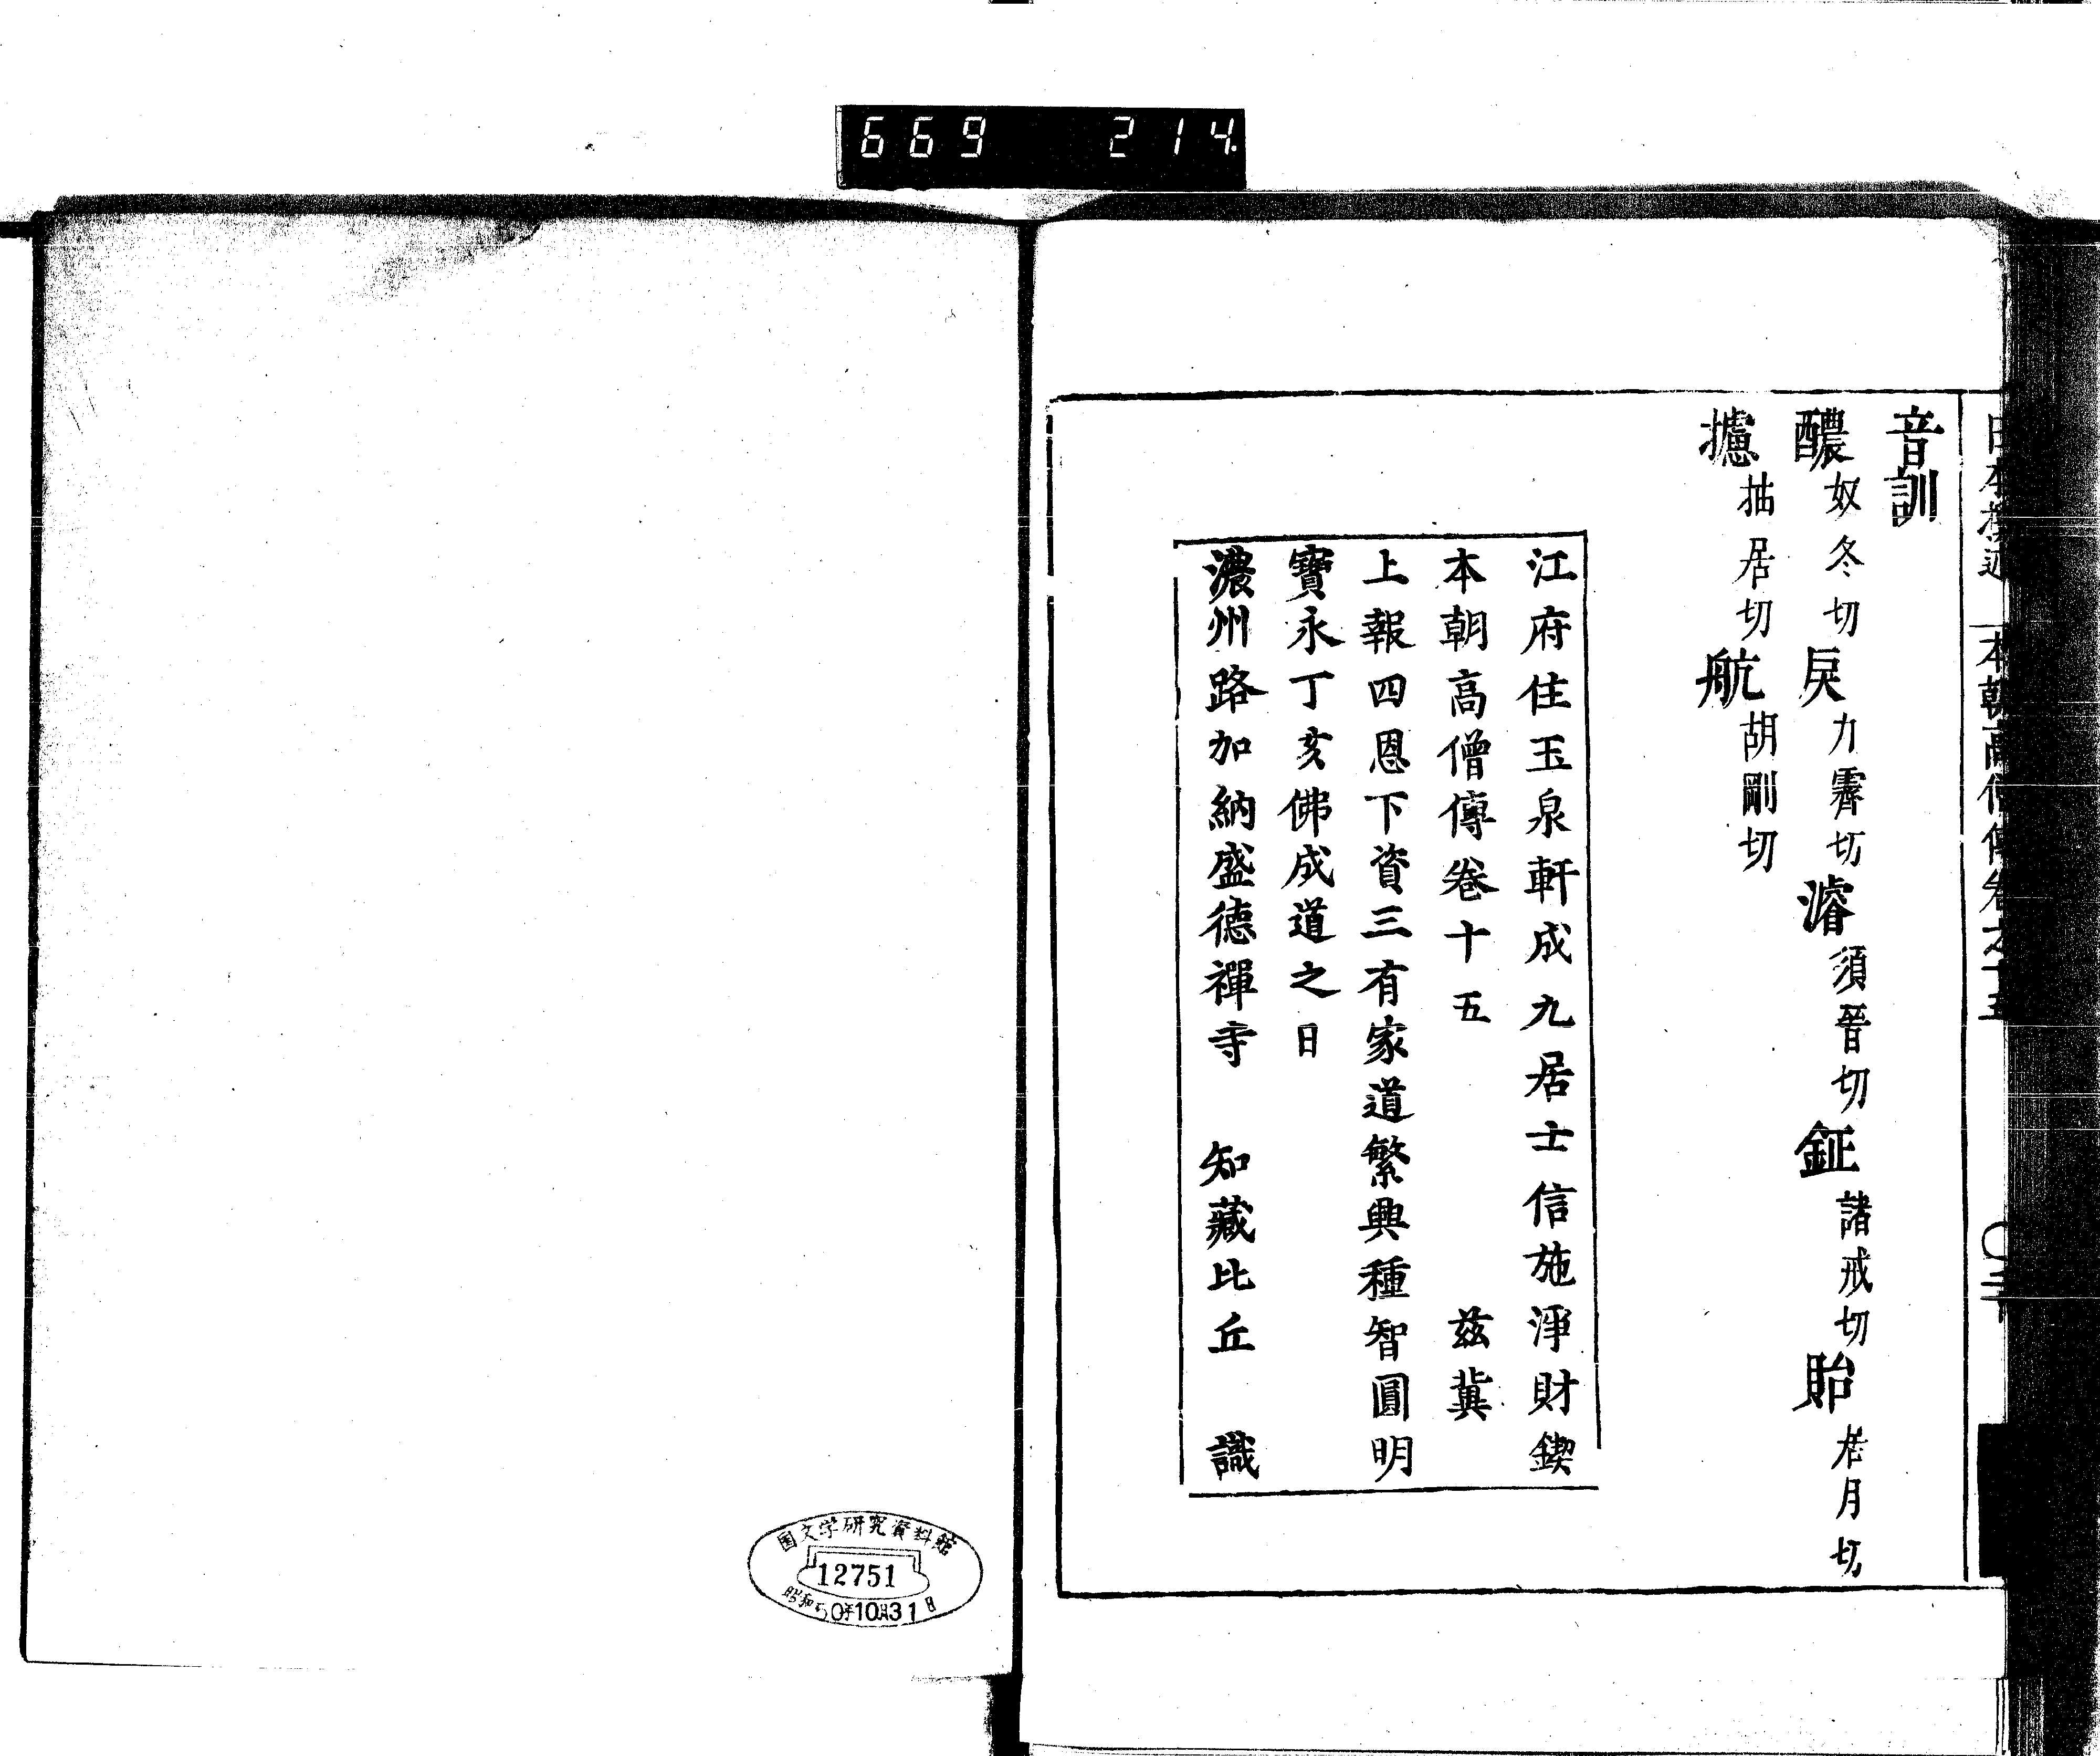 669 214
音訓
醲奴冬切戾力霽切濬須晉切鉦諸戒切貽居月切
攄抽居切航胡剛切
江府住玉泉軒成九居士信施淨財鍥
本朝高僧傳卷十五 茲冀
上報四恩下資三有家道繁興種智圓明
寶永丁亥佛成道之日
濃州路加納盛德禪寺 知藏比丘 識
国文学研究資料館
12751
昭和50年10月31日